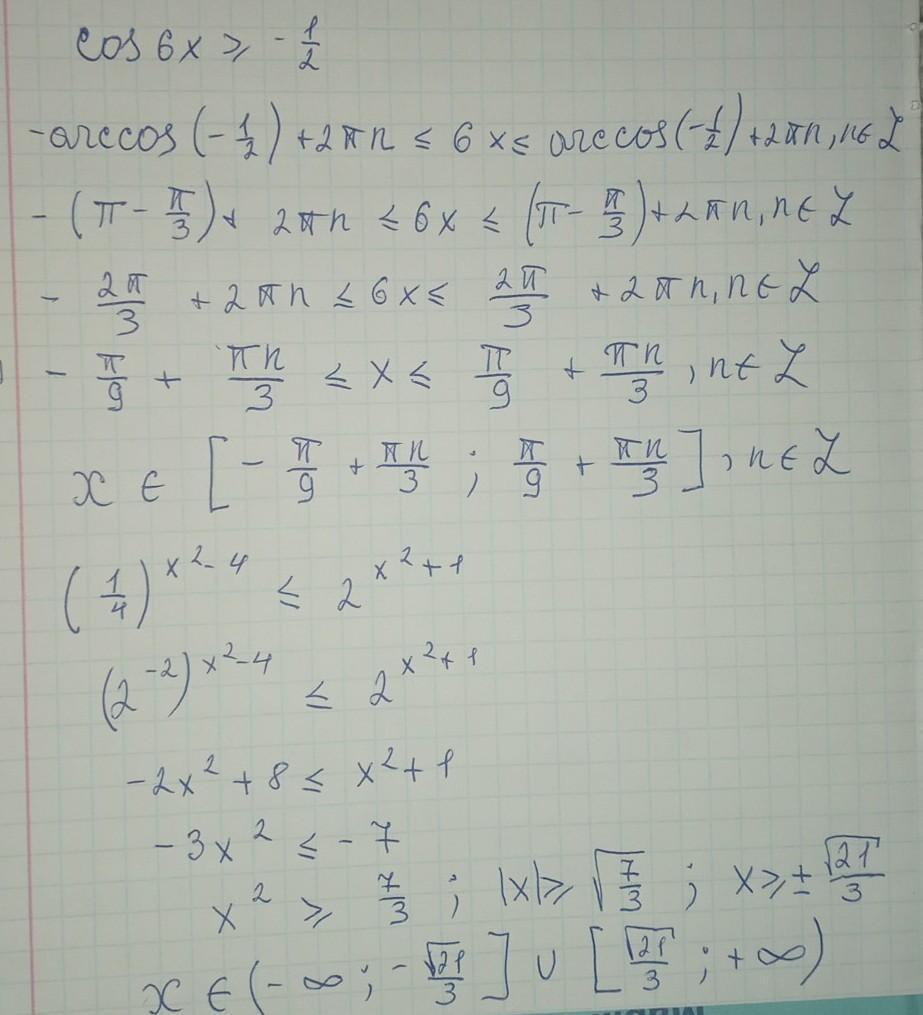 cos 6x ≥ -1/2
-arccos(-1/2) + 2πn ≤ 6x ≤ arccos(-1/2) + 2πn, n ∈ Z
-(π - π/3) + 2πn ≤ 6x ≤ (π - π/3) + 2πn, n ∈ Z
- 2π/3 + 2πn ≤ 6x ≤ 2π/3 + 2πn, n ∈ Z
- π/9 + πn/3 ≤ x ≤ π/9 + πn/3, n ∈ Z
x ∈ [- π/9 + πn/3 ; π/9 + πn/3], n ∈ Z
(1/4)^(x²-4) ≤ 2^(x²+1)
(2^-2)^(x²-4) ≤ 2^(x²+1)
-2x² + 8 ≤ x² + 1
-3x² ≤ -7
x² ≥ 7/3 ; |x| ≥ √(7/3) ; x ≥ ± √21/3
x ∈ (-∞ ; - √21/3] ∪ [√21/3 ; +∞)